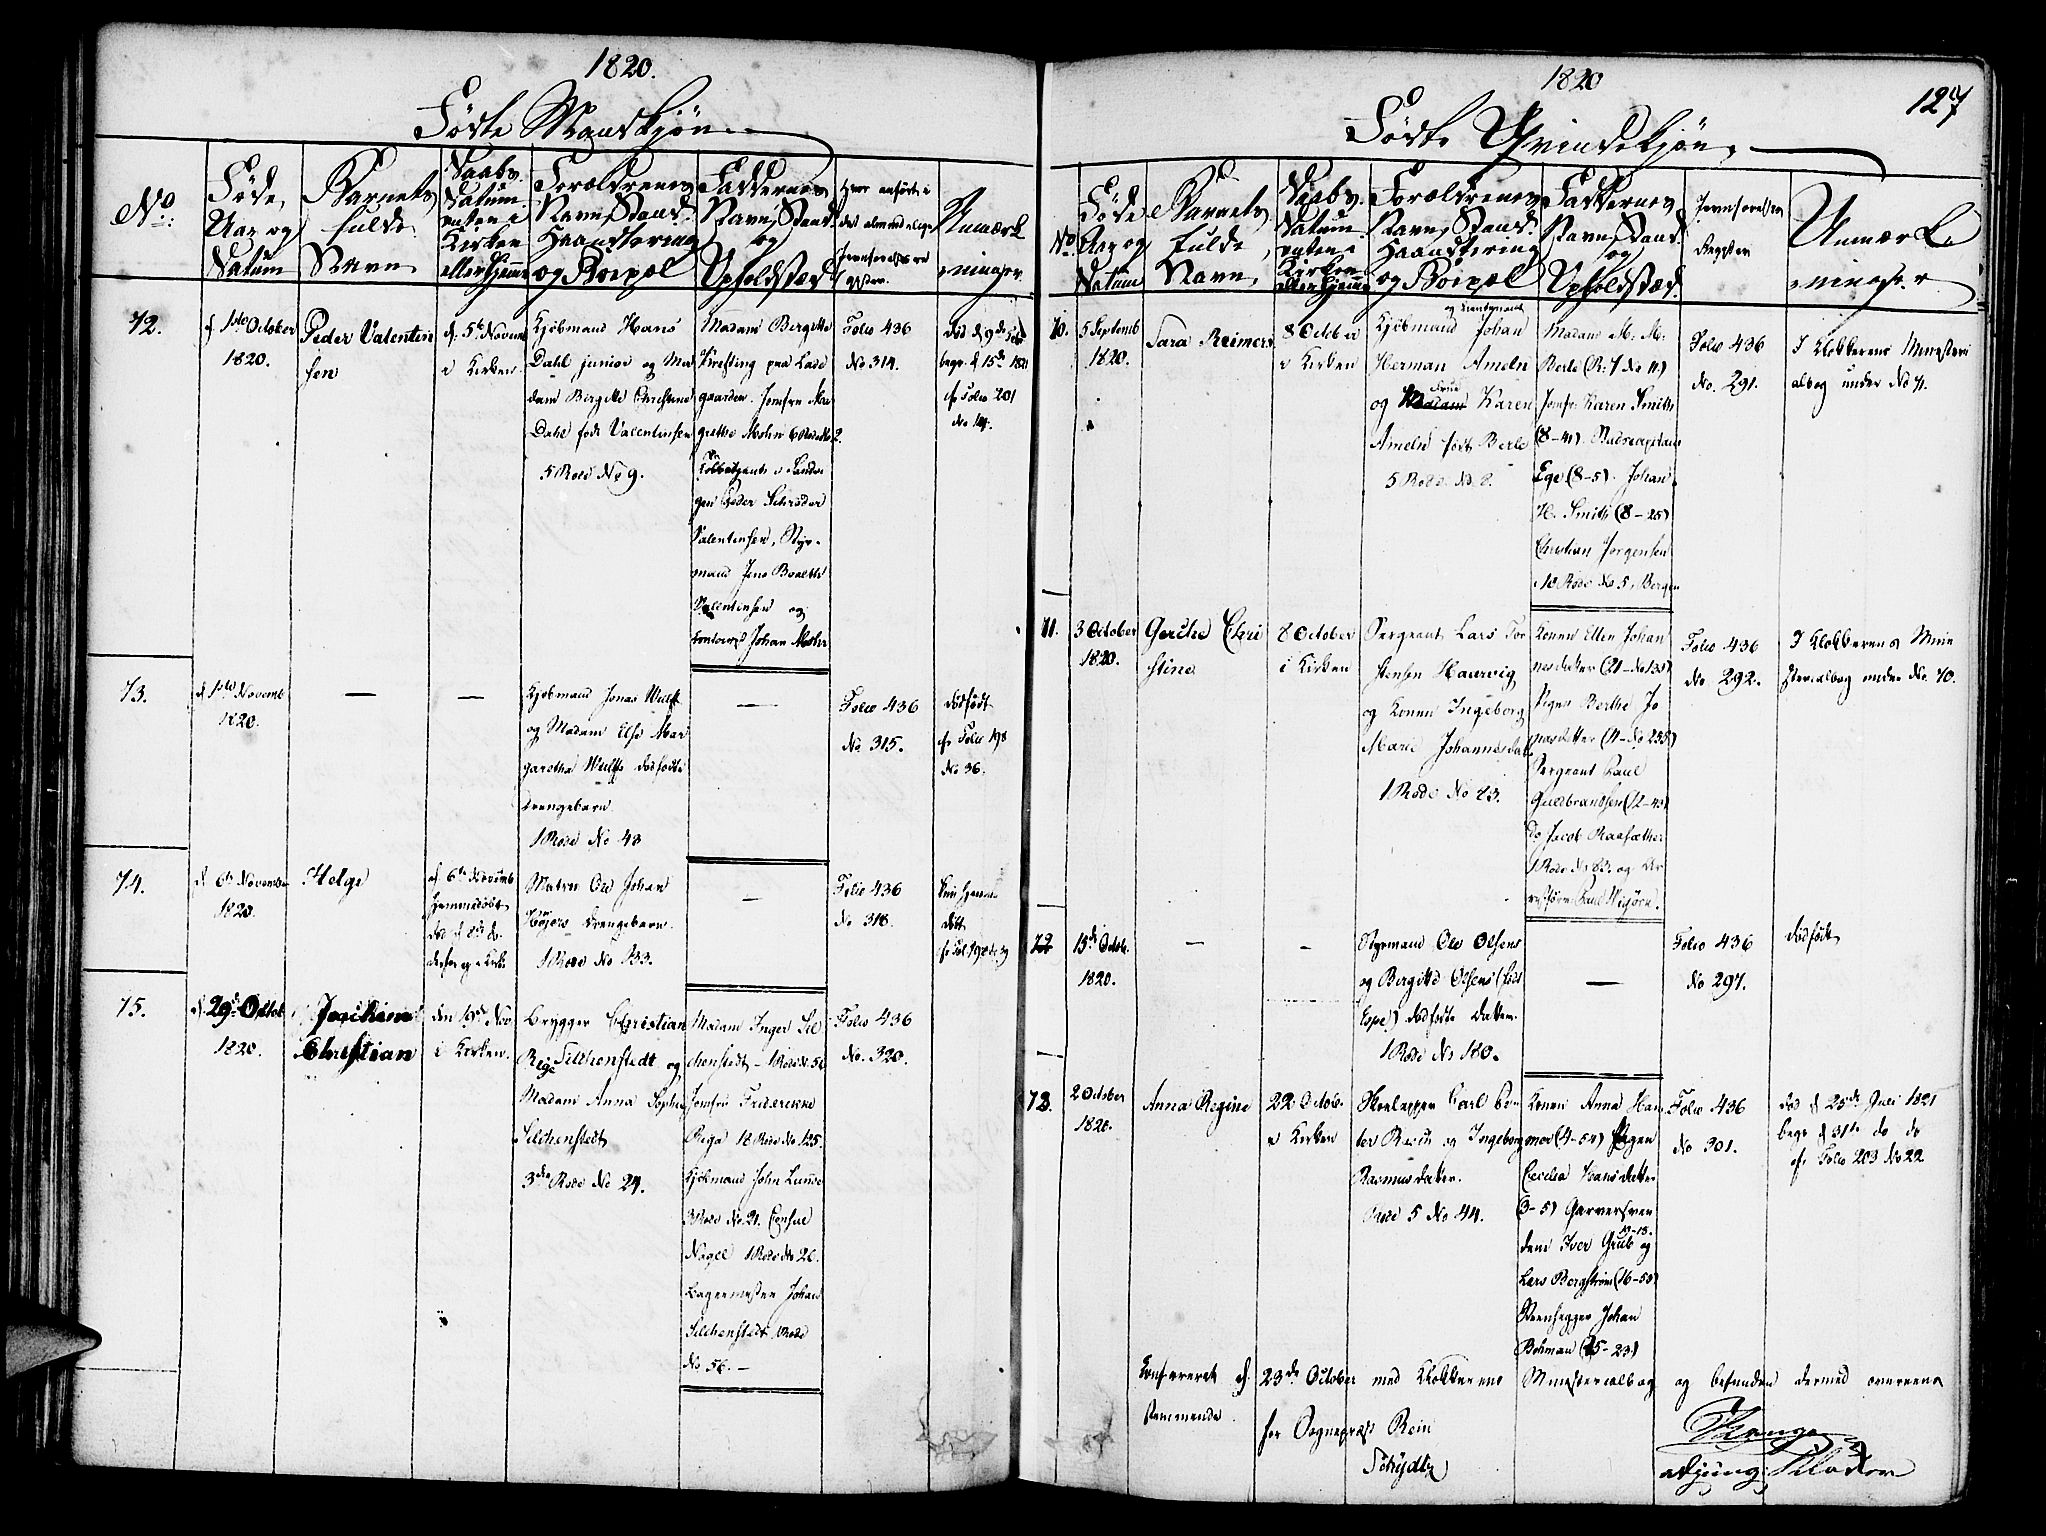 1820.
Fødte Mandkjøn
No:
Føde,
Aar og
Datum
Barnets
fulde
Navn
Daabs
Datum
enten i
Kirken
eller Hjeme
Forældrenes
Navn, Stand
Haandtering
og Boepæl
Faddernes
Navn, Stand
og
Opholdstæd
Hvor anført i
det almindelige
Jevnførelses re
gister
Anmærk
ninger
72.
d 1ste October
1820.
Peder Valentin
sen
d. 5te Novemb
i Kirken
Kjøbmand Hans
Dahl junior og Ma
dam Birgitte Christine
Dahl født Valentinsen
5 Rode No 9.
Madam Bergitte
gaarden. Jomfru Mar
grethe Mohn 6 Rode No 2.
gen Peder Schrøder
Valentinsen, Styr-
mand Jens Boalth
Valentinsen og
Johan Mohr
Folio 436
No 314.
død d 9de Febr
begr d 15de 1821
cfr Folio 201
No 14.
73.
d 1ste Novemb
1820.
—
—
Kjøbmand Jonas Wulff
og Madam Else Mar
garetha Wulffs dødfødte
Drengebarn.
1 Rode No 43
—
Folio 436
No 315.
dødfødt
cfr Folio 198
No 36.
74.
d 6te November
1820.
Helge
d 6te Novemb
hjemmedøbt
død d 8de do.
Matros Ole Johan
Høyers Drengebarn.
1 Rode No 133.
—
Folio 436
No 318.
kun hjemme
døbt
75.
d. 29de Octob
1820.
Joachim
Christian
den 19de Nov
i Kirken.
Brygger Christian
Rige Silchenstedt og
Madam Anna Sophia
Silchenstedt
3die Rode No 24.
Madam Inger Sil
chenstedt – 1 Rode No 56
Jomfru Friderikke
Rige 18 Rode No 125.
Kjøbmand John Lunde
3 Rode No. 21. Consul
Nagel 1 Rode No 26.
Bagermester Johan
Silchenstedt Rode
No 56. —
Folio 436
No. 320.
1820
127
Fødte Qvindekjøn
No
Føde
Aar og
Datum
Barnets
fulde
Navn
Daabs
Datum
enten i
Kirken
eller Hjeme
Forældrenes
Navn, Stand
Haandtering
og Boepæl
Faddernes
Navn, Stand
og
Opholdstæd
Jevnførelses
Register
Anmærk
ninger
70.
5 Septemb
1820.
Sara Reimers
8 October
i Kirken
Kjøbmand Johan
Herman Ameln
og Madam Karen
Ameln født Berle
5 Rode No 8.
Madam M. M.
Berle (R: 7 No 11.)
Jomfr: Karen Smith
(8–41) Stadscapitain
Ege (8–5). Johan
H. Smith (8–25)
Christian Jørgensen
10 Rode No 5, Bergen
Folio 436
No. 291.
I Klokkerens Ministeri
albog under No 71.
71.
3 October
1820.
Gerche Chri
stine
8 October
i Kirken
Sergeant Lars Tor
stensen Haarvig
og Konen Ingeborg
Marie Johannesdatt
1 Rode No 73.
Konen Ellen Johan
nesdatter (21–No 135)
Pigen Berthe Jo
nasdatter (11–No 255)
Sergeant Paul
Guldbrandsen (12–43)
do Jacob Raasæther
1 Rode No 83. og Ar
restforv: Paul Wigøen.
Folio 436
No 292.
I Klokkerens Mini
sterialbog under No. 70.
72
15de Octob.
1820.
—
—
Styrmand Ole Olsens
og Bergitte Olsens (født
Espe) dødfødte Datter.
1 Rode No 180.
—
Folio 436
No 297.
dødfødt
73.
2 October
1820.
Anna Regine
22 Octob.
i Kirken
Carl Pe-
ter Resch og Ingeborg
Rasmusdatter.
Rode 5 No 44.
Konen Anna Ham
mer (4–54) Pigen
Cecilia Hansdatter
(3–5) Garversven
dene Iver Grub 13–13. og
Lars Bergstrøm (16–50)
Steenhugger Johan
Bohman (25–23)
Folio 436
No 301.
død d 25de Juli 1821
begr d 31te do do
cfr Folio 203 No 22
Confereret d. 23de October med Klokkerens Ministerialbog og befunden dermed overeens
stemmende.
for Sognepræst Rein
Schydtz
Krange
adjung: Klokker